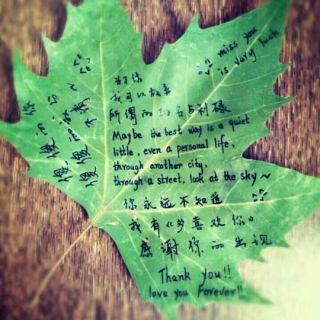 I miss you
is very much
为了你
我可以放弃
所谓的功名与利禄
Maybe the best way is a quiet
little, even a personal life,
through another city.
through a street, look at the sky~
你永远不知道
我有《多喜欢你》
感谢你的出现
Thank you!!
love you Forever!!